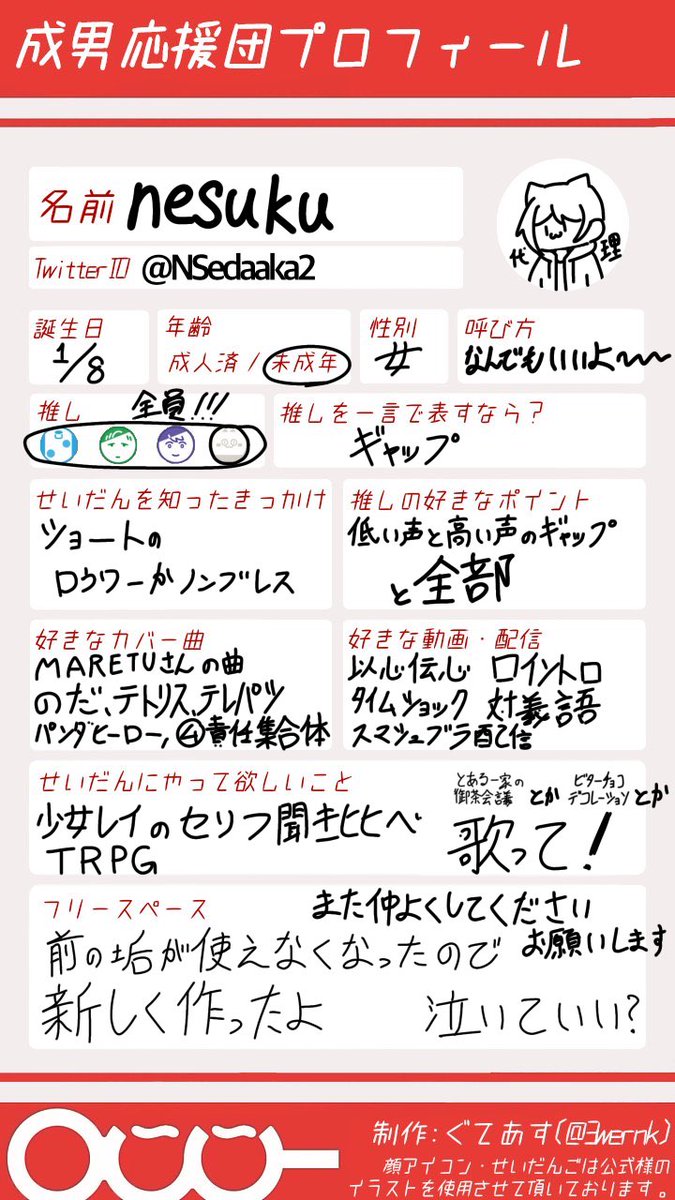 成男応援団プロフィール
名前 nesuku
代理
TwitterID @NSedaaka2
誕生日 1/8
年齢 成人済 / 未成年
性別 女
呼び方 なんでもいいよ〜〜
推し 全員!!!
推しを一言で表すなら?
ギャップ
せいだんを知ったきっかけ
ショートの
ロウワーかノンブレス
推しの好きなポイント
低い声と高い声のギャップ
と全部
好きなカバー曲
MARETUさんの曲
のだ、テトリス、テレパツ
パンダヒーロー, ④責任集合体
好きな動画・配信
以心伝心 口イントロ
タイムショック 対義語
スマッシュブラ配信
せいだんにやって欲しいこと
少女レイのセリフ聞き比べ
TRPG
とある一家の御茶会議 とか ビターチョコデコレーション とか
歌って!
フリースペース
また仲よくしてください
お願いします
前の垢が使えなくなったので
新しく作ったよ 泣いていい?
制作:ぐてあす(@3wernk)
顔アイコン・せいだんごは公式様の
イラストを使用させて頂いております。